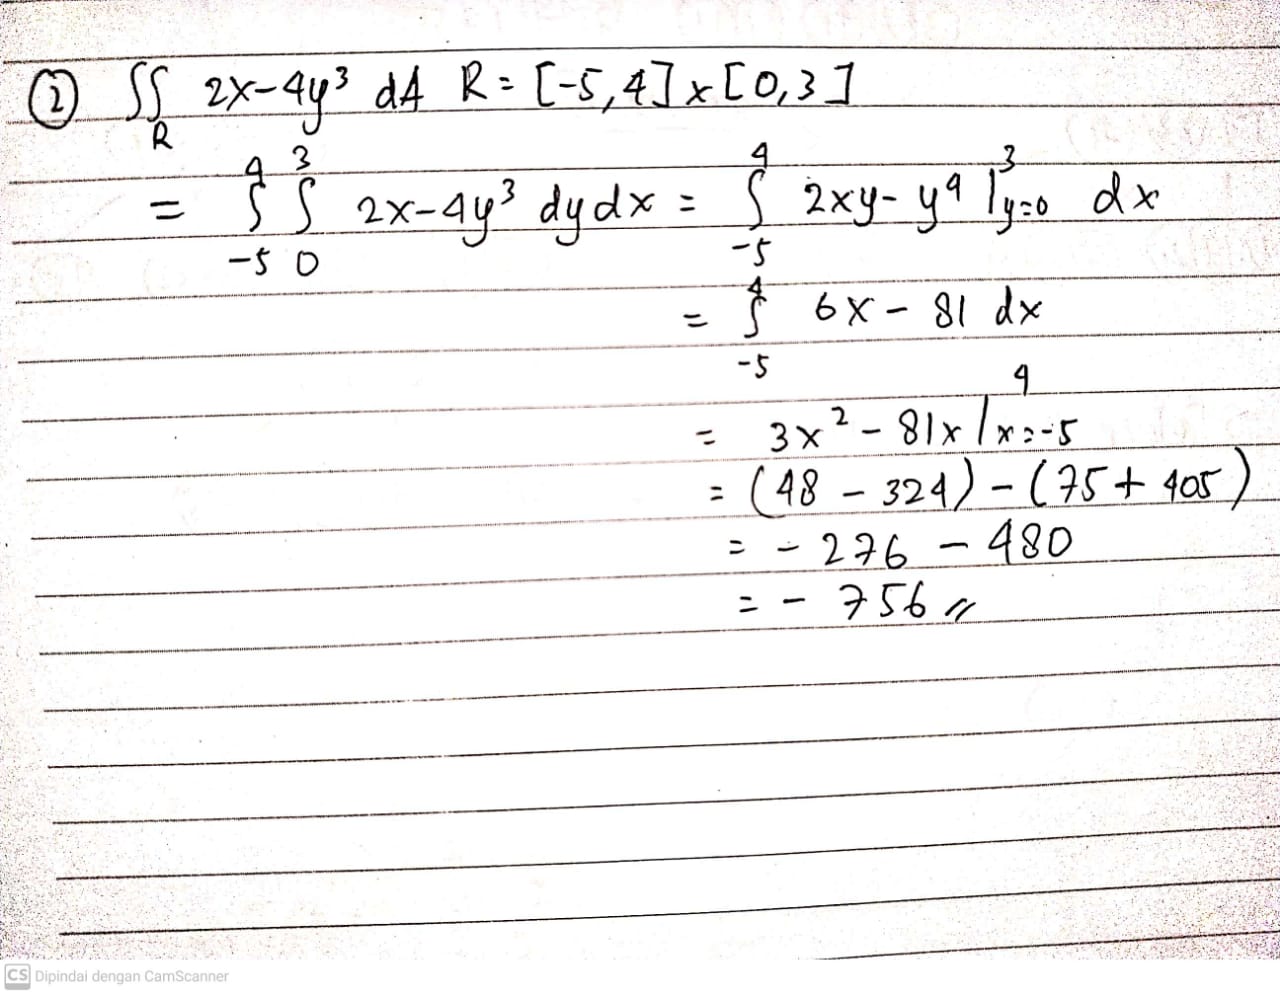 ② ∫∫_R 2x-4y³ dA R = [-5,4] x [0,3]
= ∫_{-5}^{4} ∫_{0}^{3} 2x-4y³ dy dx = ∫_{-5}^{4} 2xy - y⁴ |_{y=0}^{3} dx
= ∫_{-5}^{4} 6x - 81 dx
= 3x² - 81x |_{x=-5}^{4}
= (48 - 324) - (75 + 405)
= - 276 - 480
= - 756 //
CS Dipindai dengan CamScanner